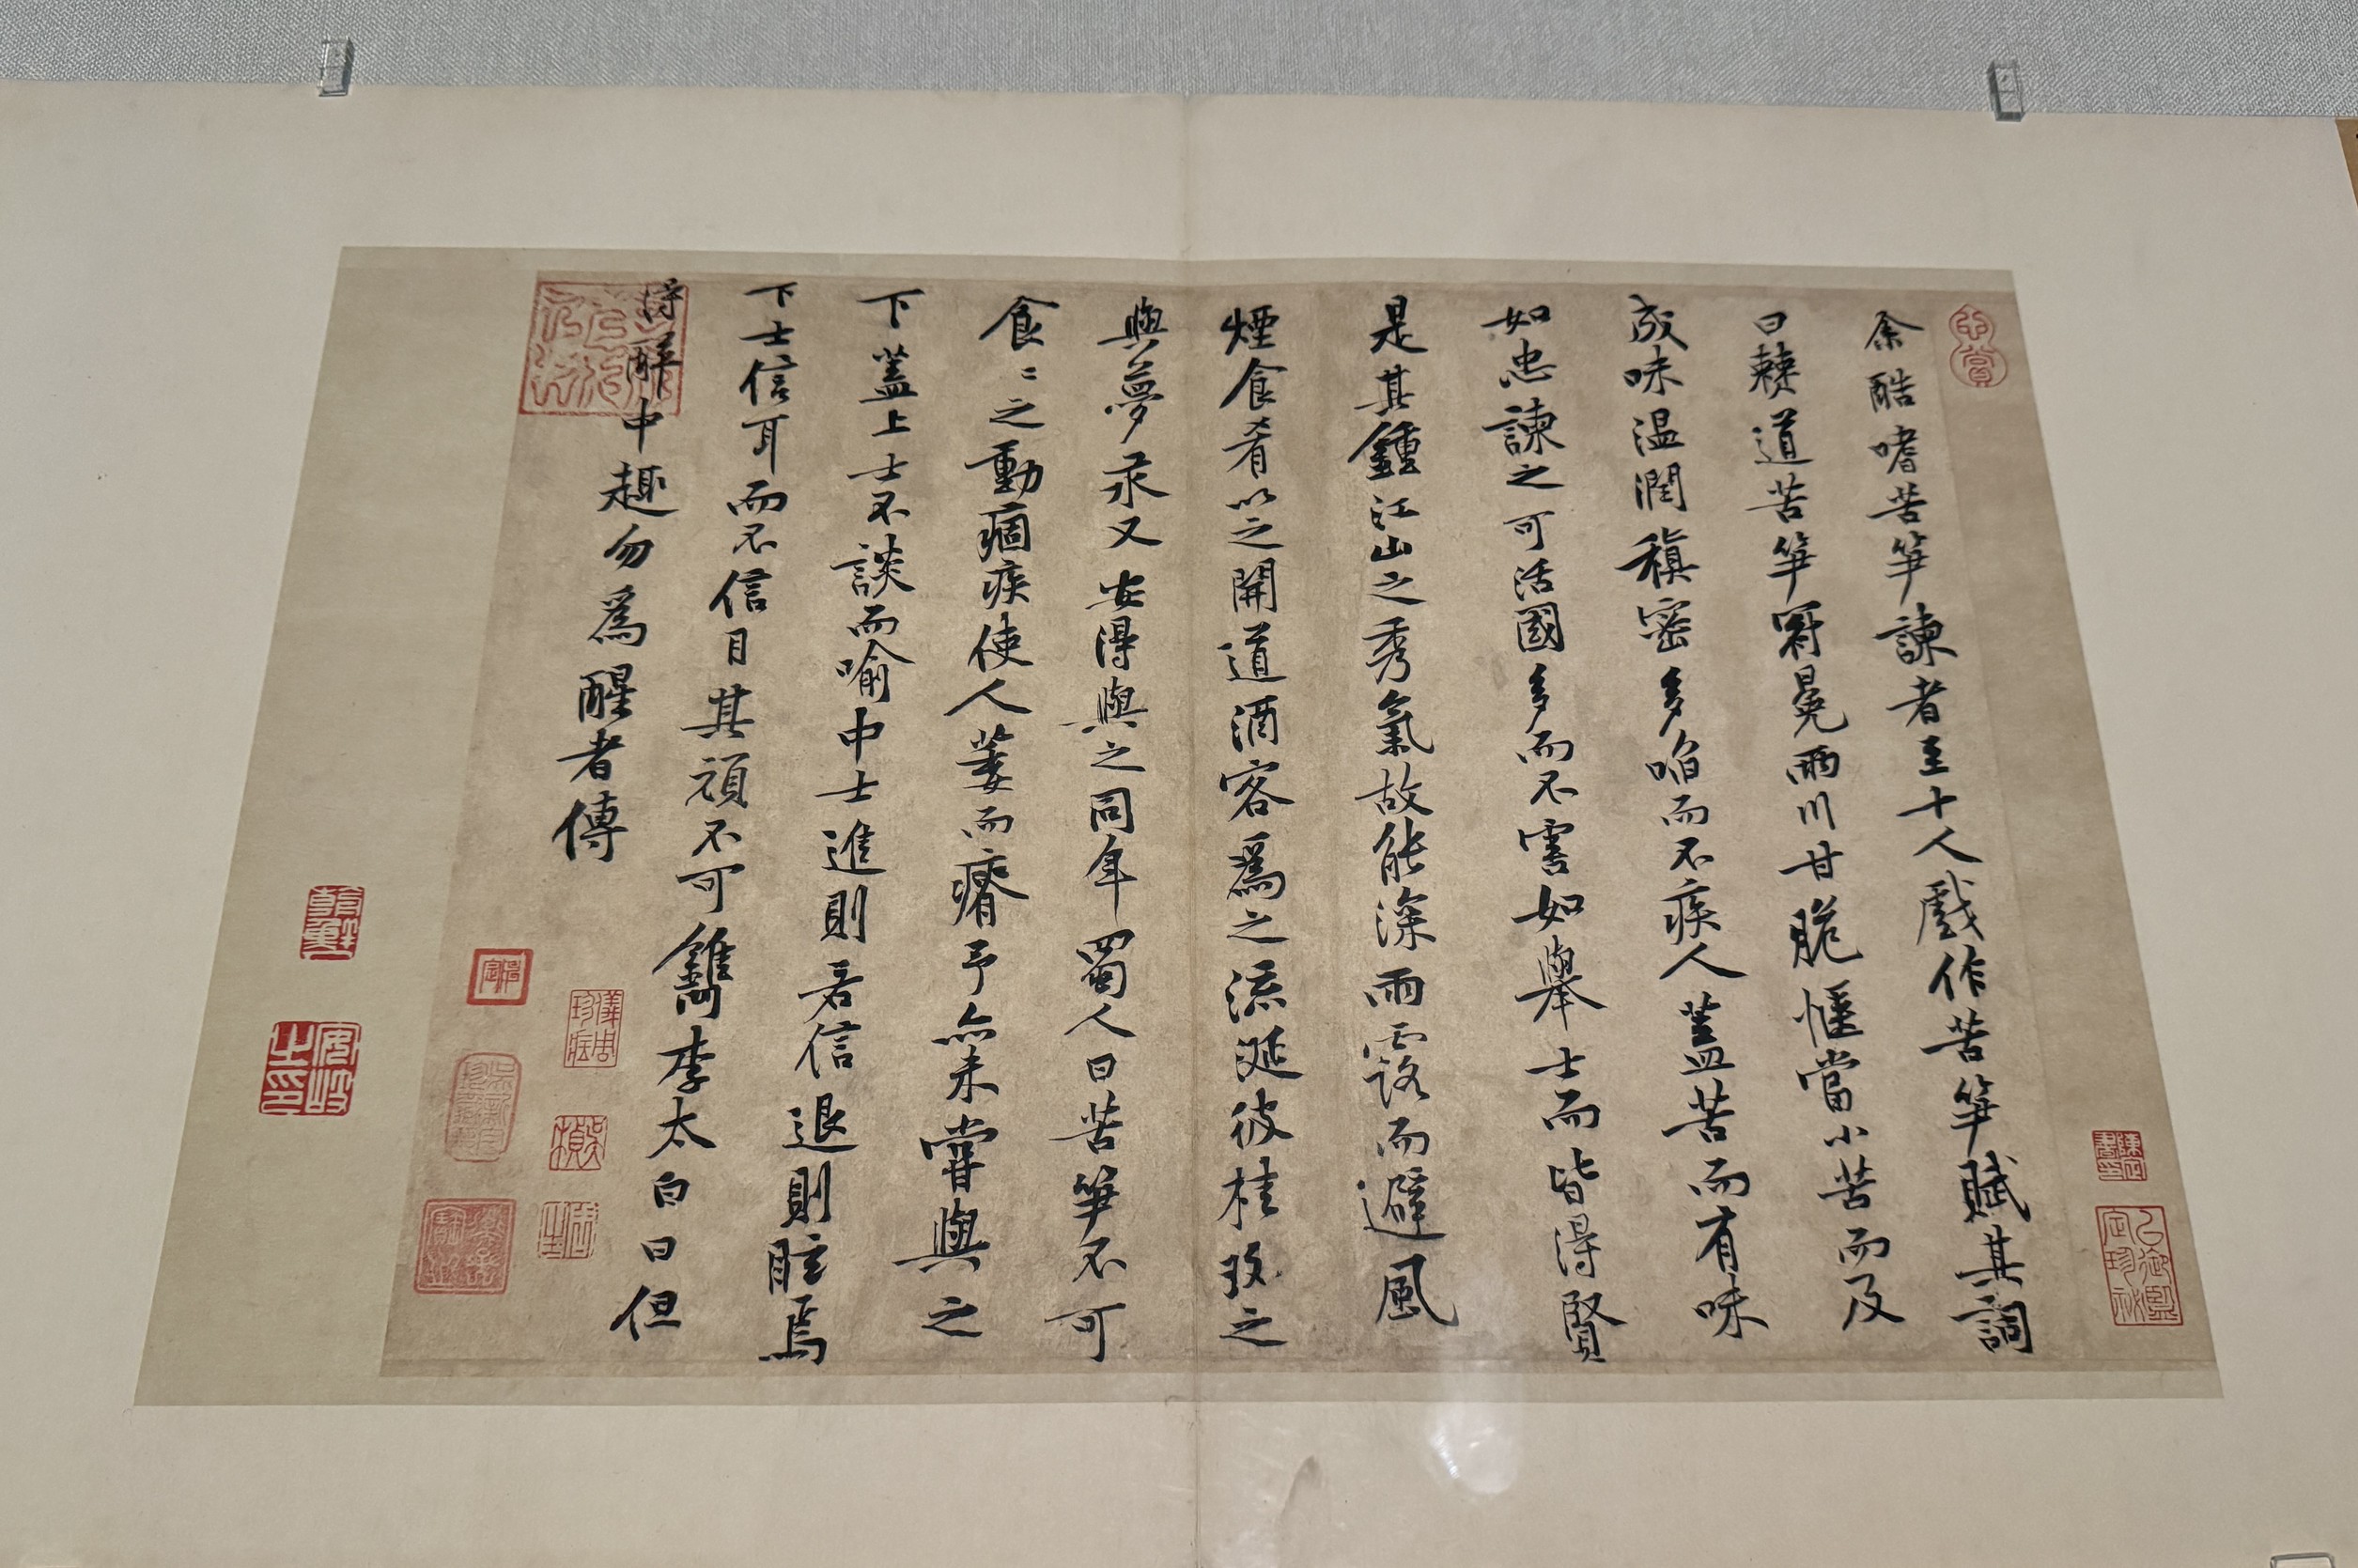 余酷嗜苦笋諫者至十人戲作苦笋賦其詞
曰僰道苦笋冠冕兩川甘脆愜當小苦而及
成味溫潤稹密多啗而不疾人蓋苦而有味
如忠諫之可活國多而不害如舉士而皆得賢
是其鍾江山之秀氣故能深雨露而避風
煙食肴以之開道酒客爲之流涎彼桂玫之
與夢汞又安得與之同年蜀人曰苦笋不可
食〻之動痼疾使人萎而瘠予亦未嘗與之
下蓋上士不談而喻中士進則若信退則眩焉
下士信耳而不信目其頑不可鐫李太白曰但
得醉中趣勿爲醒者傳